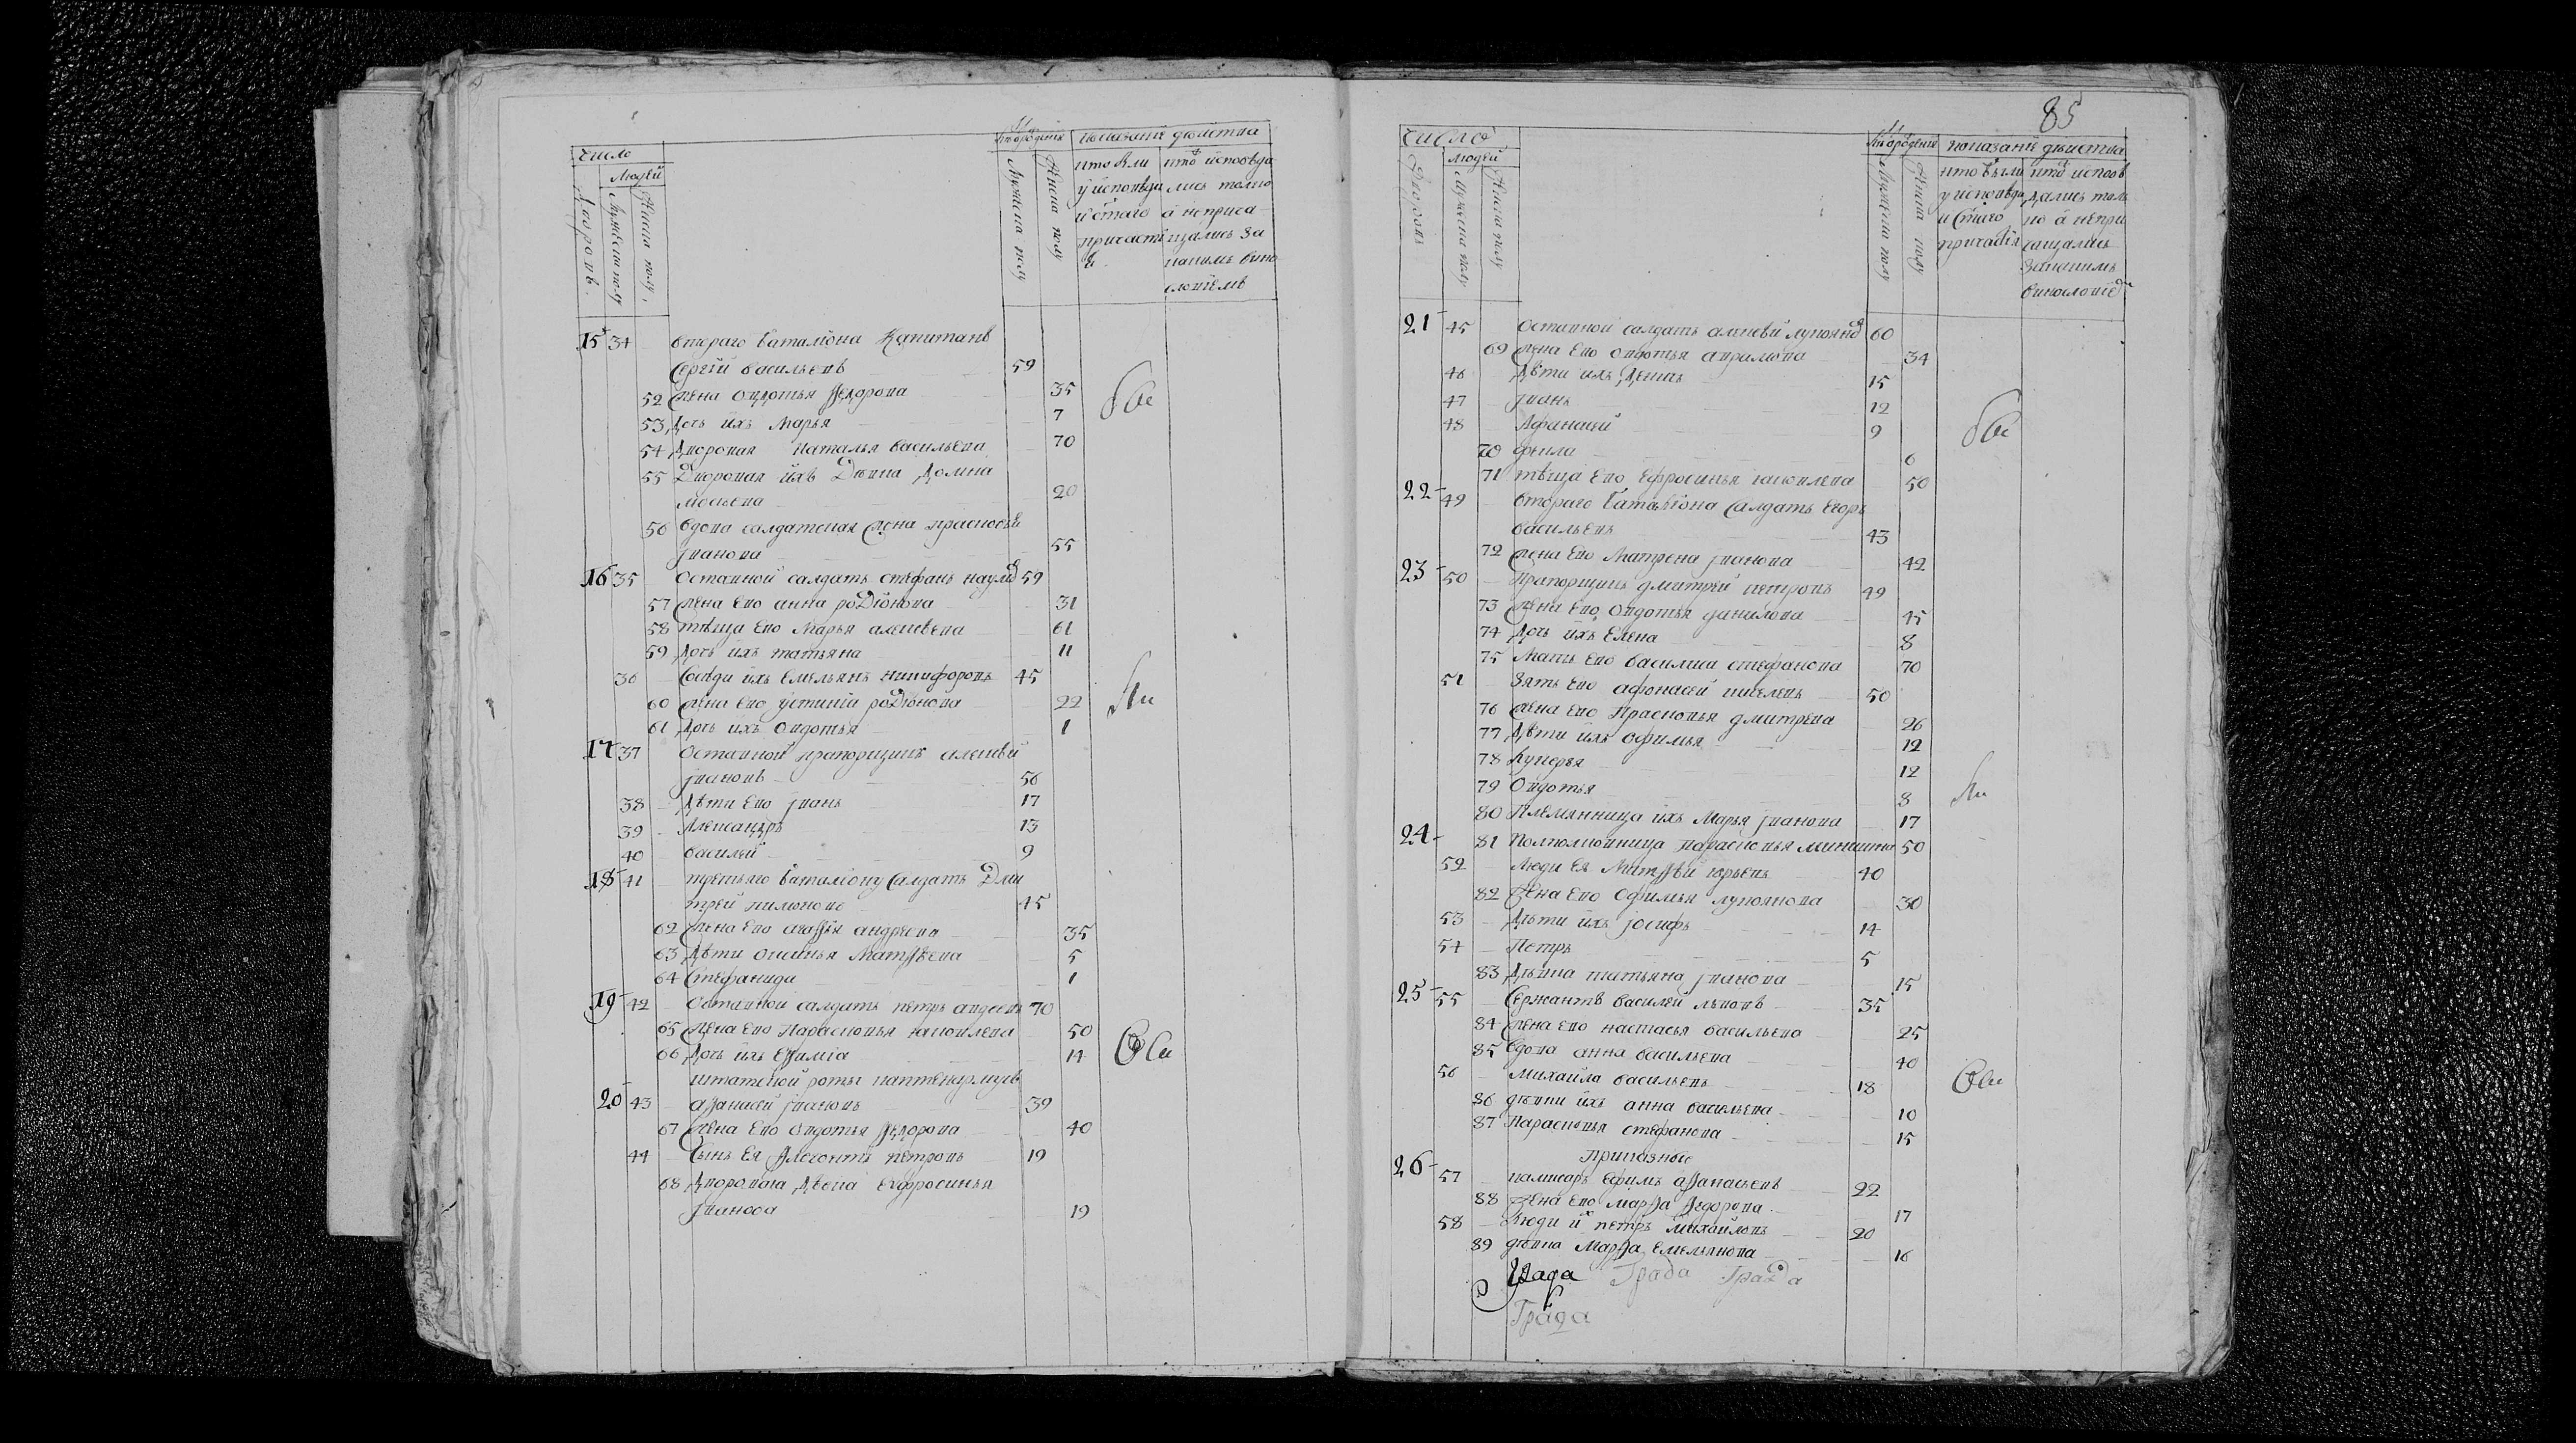 число
людей
Дворовъ.
Мужеска полу
Женска полу,
Лѣта от рождения
Мужеска полу
Женска полу
показание действа
кто были у исповеди и святаго причастия
кто исповедались только а не причащались за каким винословием
15 34 втораго баталиона Капитанъ
Сергей васильевъ 59
52 жена овдотья Федорова 35
53 Дочь ихъ Марья 7
бы
54 Дворовая наталья васильева 70
55 Дворовая ихъ Девка Домна
20
56 вдова салдатская жена прасковья
Иванова 55
16 35 Оставной салдатъ стефанъ наумо 59
57 жена ево анна родионова 31
58 теща ево Марья алексеева 61
59 Дочь ихъ татьяна 11
36 Соседи ихъ Емельянъ никифоровъ 45
60 жена ево устинiя родионова 22
ли
61 Дочь ихъ Овдотья 1
17 37 Оставной прапорщикъ алексей
Ивановъ 56
38 Дѣти ево Иванъ 17
39 Александръ 13
40 василей 9
18 41 третьяго баталиону Салдатъ Дми
трей пимоновъ 45
62 жена ево агафья андреева 35
63 Дѣти Матфеева 5
64 Стефанида 1
19 42 Оставной салдатъ петръ авдеевъ 70
65 жена ево Парасковья яковлева 50
66 Дочь ихъ ефимiа 14
все
штатской роты каптенармусъ
20 43 афанасей Ивановъ 39
67 жена ево овдотья Федорова 40
44 Сынъ ея Алесонти петровъ 19
68 Дворовая Девка ефросинья
Иванова 19
85
число
людей
Дворовъ
Мужеска полу
Женска полу
Лѣта от рождения
Мужеска полу
Женска полу
показание действа
кто были у исповеди и святаго причастия
кто исповедались только а не причащались за каким винословие
21 45 Оставной салдатъ алексей лупоянъ 60
69 жена ево овдотья аврамова 34
46 Дѣти ихъ Денисъ 15
47 Иванъ 12
48 Афанасей 9
бы
70 фекла 6
71 теща ево Ефросинья яковлева 50
22 49 втораго Баталиона Салдатъ Егоръ
васильевъ 43
72 жена ево Матрена Иванова 42
23 50 Прапорщикъ дмитрей петровъ 49
73 жена ево Овдотья данилова 45
74 Дочь ихъ Елена 8
75 Мать ево василиса стефанова 70
51 Зять ево афонасей киселевъ 50
76 жена ево Прасковья дмитрева 26
77 Дѣти ихъ Офимья 12
78 Лукерья 12
79 Овдотья 8
ли
80 Племянница ихъ Марья Иванова 17
24 81 Полполковница парасковья микишина 50
52 Люди ея Матфей юрьевъ 40
82 жена ево Офимья лупоянова 30
53 Дѣти ихъ Iосифъ 14
54 Петръ 5
83 Девка татьяна Иванова 15
25 55 Сержантъ василей львовъ 35
84 жена ево настасья васильева 25
85 вдова анна васильева 40
56 Михайла васильевъ 18
все
86 девки ихъ анна васильева 10
87 Парасковья стефанова 15
приказные
26 57 капиаръ Ефимъ афанасьевъ 22
88 жена ево марфа Федорова 17
58 Люди их петръ михайловъ 20
89 девка Марфа Емельянова 16
Града Града Града
Града